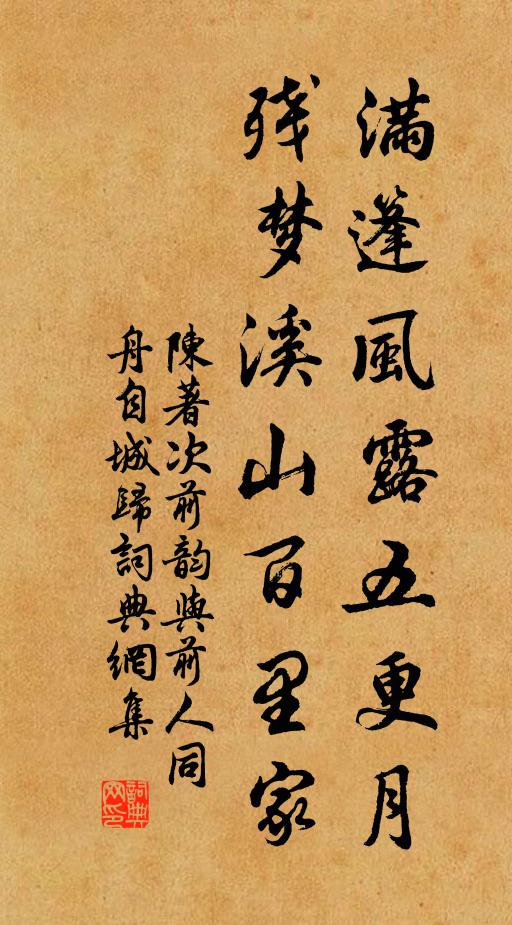 滿篷風露五更月
残梦溪山百里家
陳著次前韵與前人同
舟自城歸詞典網集
詞典
网印